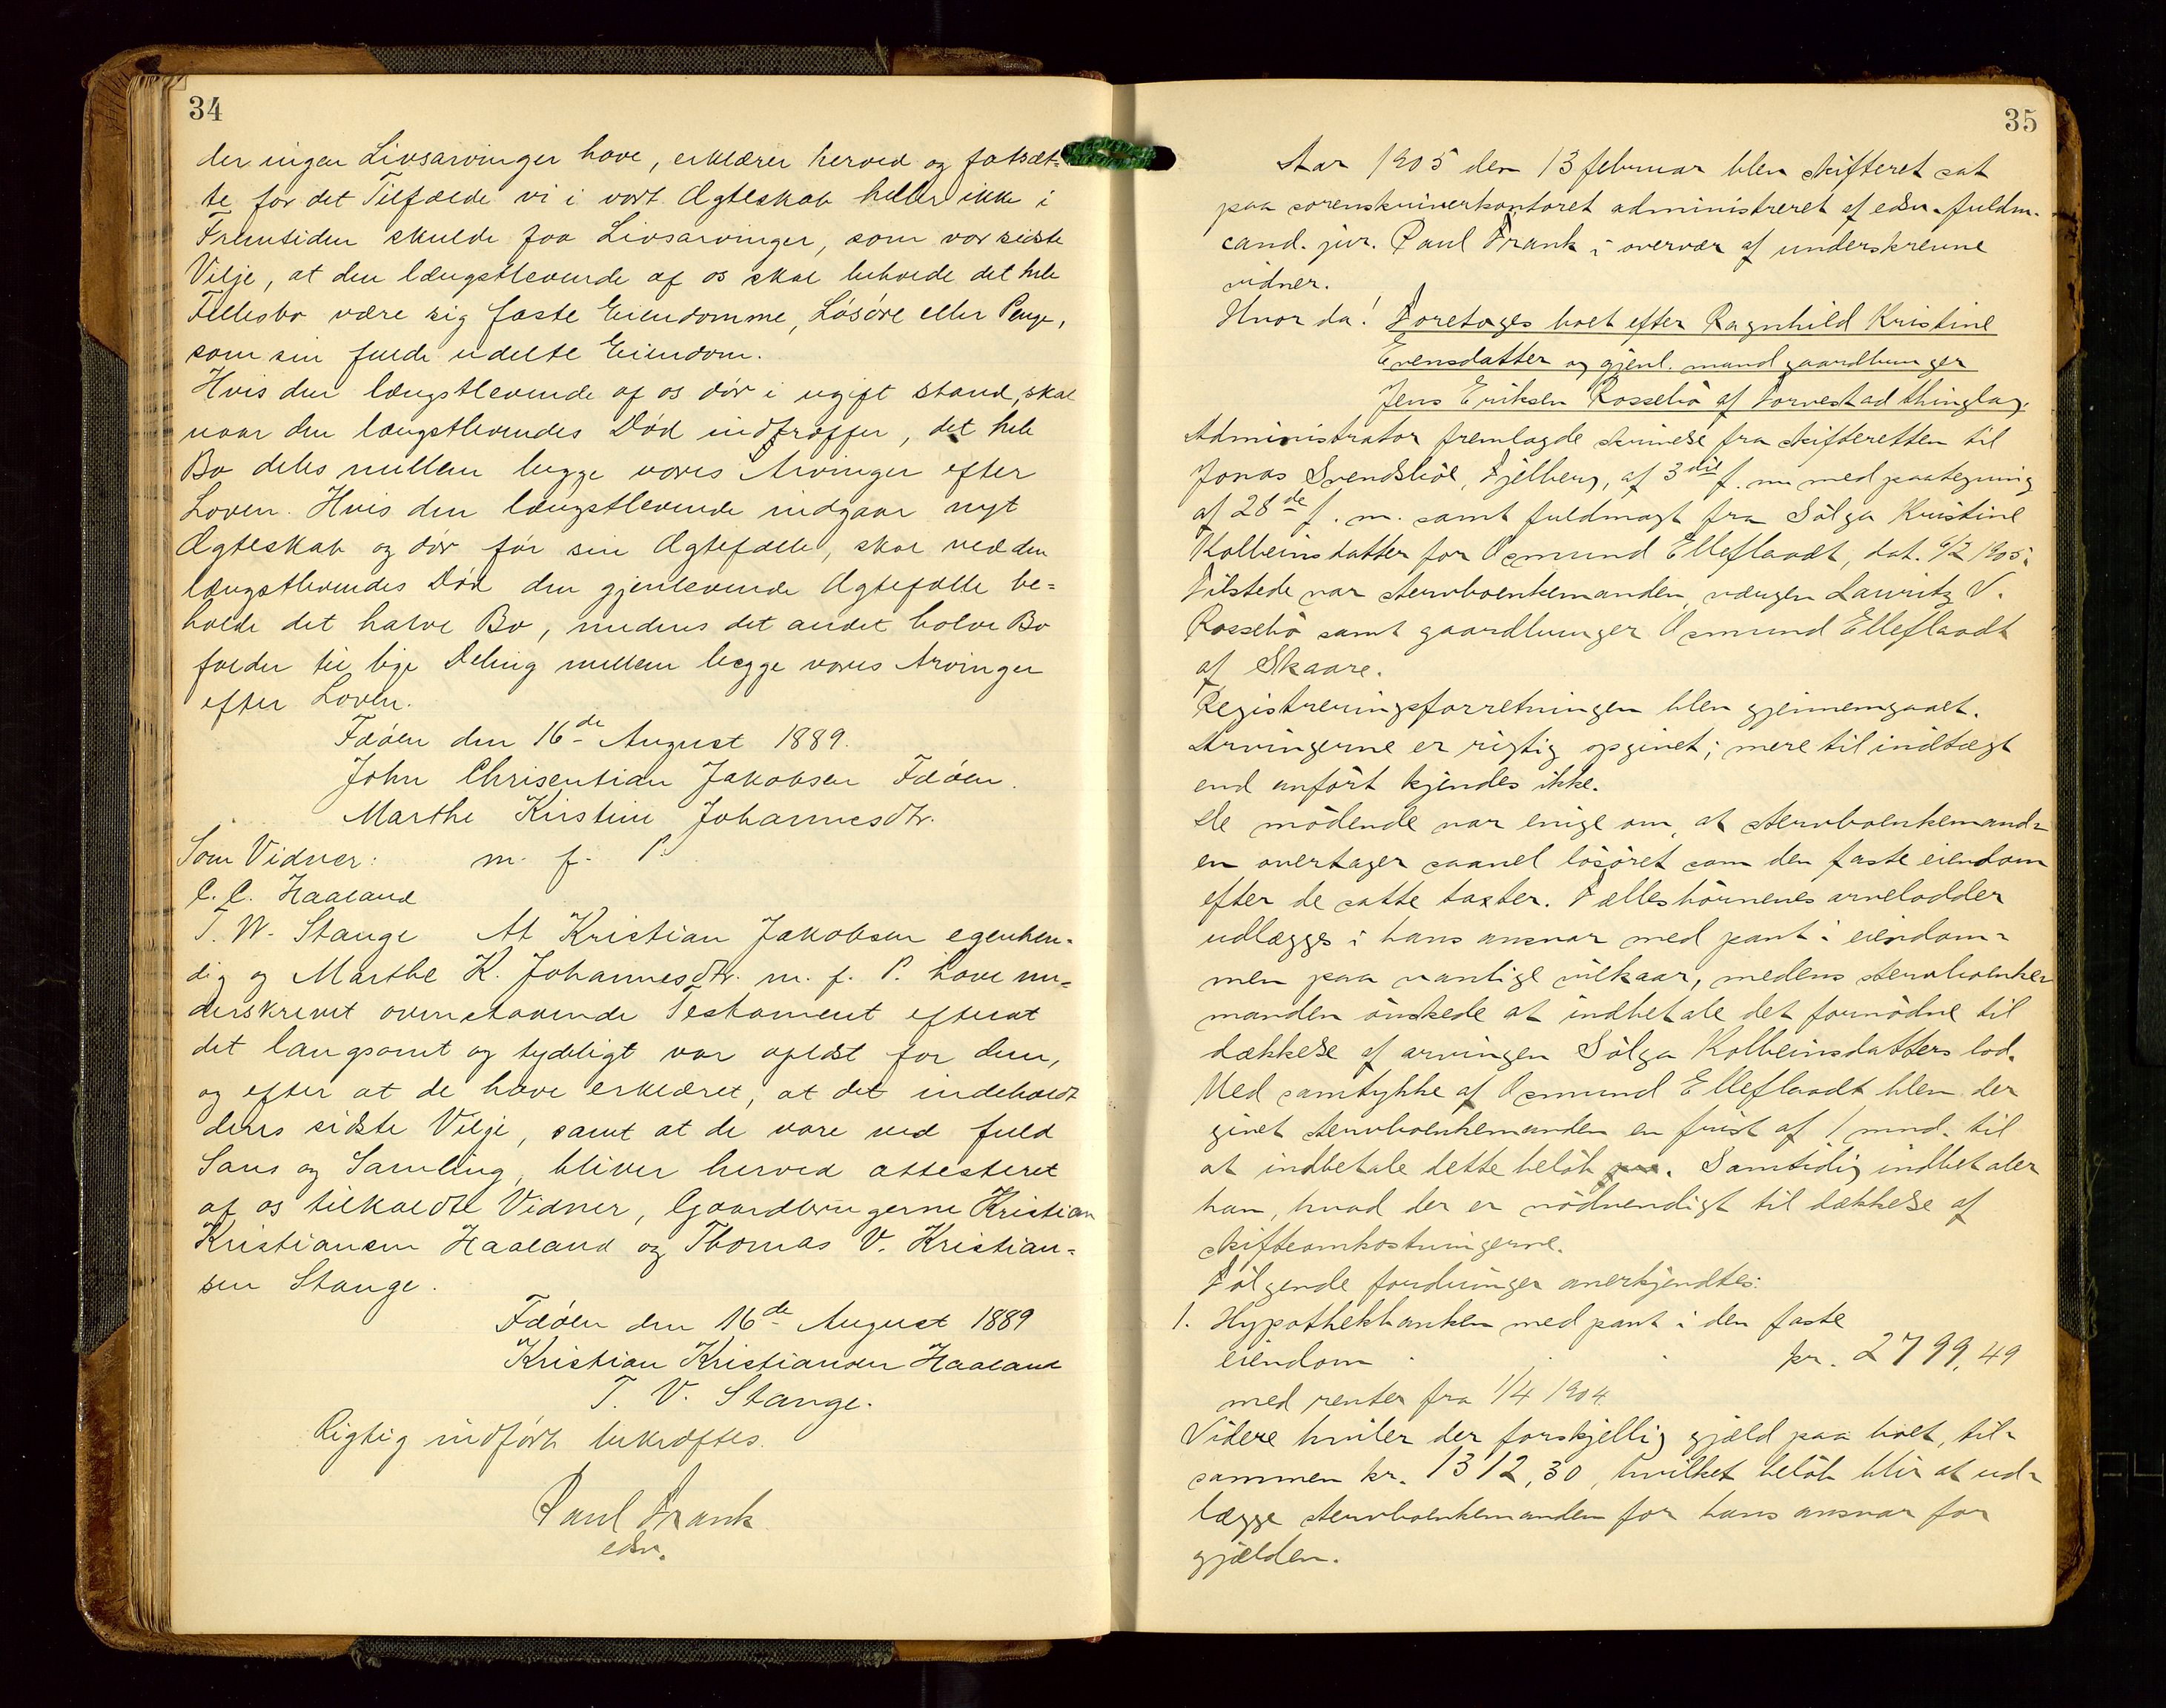 34
der ingen Livsarvinger have, erklærer herved og fastsæt-
te for det Tilfælde vi i vort Ægteskab heller ikke i
Fremtiden skulde faa Livsarvinger, som vor sidste
Vilje, at den længstlevende af os skal beholde det hele
Fellesbo være sig faste Eiendomme, Løsøre eller Penge,
som sin fulde udelte Eiendom.
Hvis den længstlevende af os dør i ugift stand, skal
naar den længstlevendes Død indtræffer, det hele
Bo deles mellem begge vores Arvinger efter
Loven. Hvis den længstlevende indgaar nyt
Ægteskab og dør før sin Ægtefælle, skal ved den
længstlevendes Død den gjenlevende Ægtefælle be=
holde det halve Bo, medens det andet halve Bo
falder til lige Deling mellem begge vores Arvinger
efter Loven.
Fæøen den 16de August 1889.
John Chrisentian Jakobsen Fæøen.
Marthe Kirstine Johannesdtr.
Som Vidner: m. f. P.
C. C. Haaland
T. W. Stange At Kristian Jakobsen egenhen-
dig og Marthe K. Johannesdtr. m. f. P. have un=
derskrevet ovenstaaende Testament efterat
det langsomt og tydeligt var oplæst for dem,
og efter at de have erklæret, at det indeholdt
deres sidste Vilje, samt at de vare ved fuld
Sans og Samling, bliver herved attesteret
af os tilkaldte Vidner, Gaardbrugerne Kristian
Kristiansen Haaland og Thomas V. Kristian=
sen Stange.
Fæøen den 16de August 1889
Kristian Kristiansen Haaland
T. V. Stange.
Rigtig indført bekræftes.
Paul Frank
edsv.
35
Aar 1905 den 13 februar blev skifteret sat
paa sorenskriverkontoret administreret af edsv. fuldm.
cand. jur. Paul Frank i overvær af underskrevne
vidner.
Hvor da! Foretages boet efter Ragnhild Kristine
Evensdatter og gjenl. mand gaardbruger
Jens Eriksen Rossebø af Torvestad thinglag.
Administrator fremlagde skrivelse fra skifteretten til
Jonas Svendsbøe, Fjelberg, af 3die f. m. med paategning
af 28de f. m. samt fuldmagt fra Sølga Kristine
Kolbeinsdatter for Osmund Elleflaadt, dat. 6/2 1905.
Tilstede var stervboenkemanden, værgen Lauritz V.
Rossebø samt gaardbruger Osmund Elleflaadt
af Skaare.
Registreringsforretningen blev gjennemgaaet.
Arvingerne er rigtig opgivet; mere til indtægt
end anført kjendes ikke.
De mødende var enige om, at stervboenkemand-
en overtager saavel løsøret som den faste eiendom
efter de satte taxter. Fællesbørnenes arvelodder
udlægges i hans ansvar med pant i eiendom-
men paa vanlige vilkaar, medens stervboenke-
manden ønskede at indbetale det fornødne til
dækkelse af arvingen Sølga Kolbeinsdatters lod.
Med samtykke af Osmund Elleflaadt blev der
givet stervboenkemanden en frist af 1 mnd. til
at indbetale dette beløb. Samtidig indbetaler
han, hvad der er nødvendigt til dækkelse af
skifteomkostningerne.
Følgende fordringer anerkjendtes:
1. Hypothekbanken med pant i den faste
eiendom kr. 2799,49
med renter fra 1/4 1904
Videre hviler der forskjellig gjæld paa boet, til-
sammen kr. 1312,30, hvilket beløb blir at ud-
lægge stervboenkemanden for hans ansvar for
gjælden.